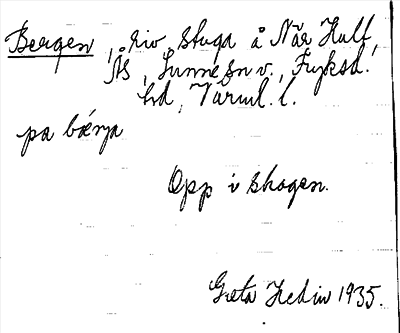 Bergen, riv. stuga å När Hult,
Ås, Sunne sn v., Fryksd.
hd, Värml. l.
på bærja
Opp i skogen.
Greta Hedin 1935.